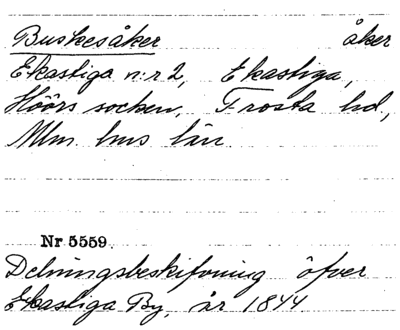 Buskesåker åker
Ekastiga n:r 2, Ekastiga,
Höörs socken, Frosta hd,
Mlm hus län
Nr 5559
Delningsbeskifvning öfver
Ekastiga By, år 1844.